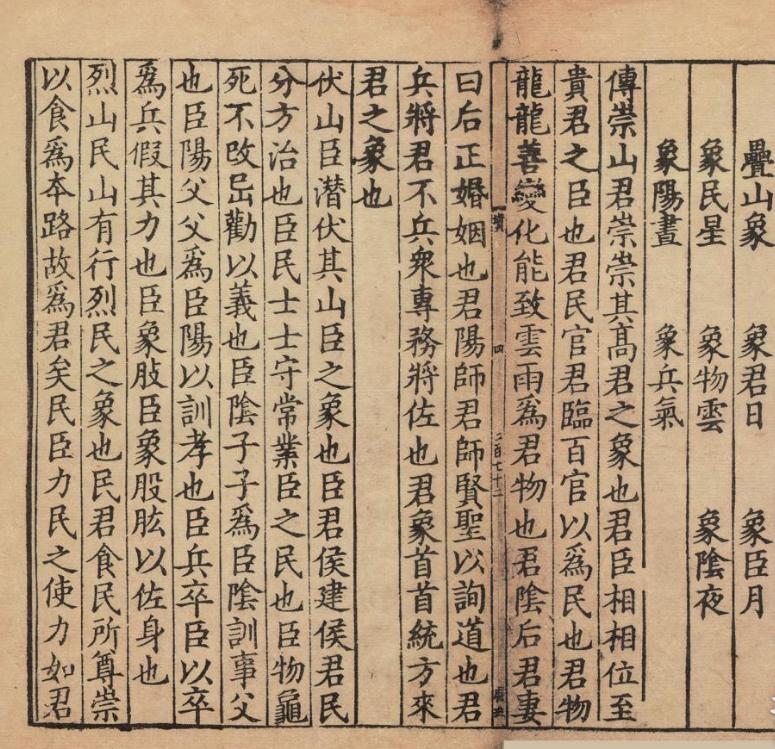 疊山象　象君日　象臣月
象民星　象物雲　象陰夜
象陽晝　象兵氣
傳崇山君崇崇其高君之象也君臣相相位至
貴君之臣也君民官君臨百官以爲民也君物
龍龍善變化能致雲雨爲君物也君陰后君妻
四
二百七十二
曰后正婚姻也君陽師君師賢聖以詢道也君
兵將君不兵衆專務將佐也君象首首統方來
君之象也
伏山臣潛伏其山臣之象也臣君侯建侯君民
分方治也臣民士士守常業臣之民也臣物龜
死不改岊勸以義也臣陰子子爲臣陰訓事父
也臣陽父父爲臣陽以訓孝也臣兵卒臣以卒
爲兵假其力也臣象胑臣象股肱以佐身也
烈山民山有行烈民之象也民君食民所尊崇
以食爲本路故爲君矣民臣力民之使力如君